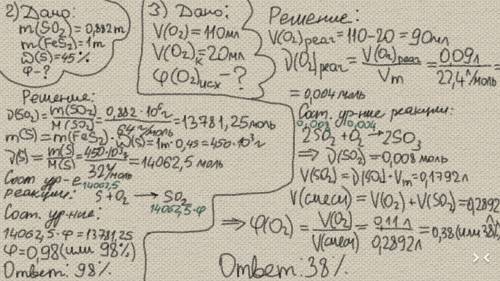 2) Дано:
m(SO₂) = 0,882т
m(FeS₂) = 1т
ω(S) = 45%
φ-?
Решение:
ν(SO₂) = m(SO₂)/M(SO₂) = 0,882·10⁶г/64г/моль = 13781,25моль
m(S) = m(FeS₂)·ω(S) = 1т·0,45 = 450·10³г
ν(S) = m(S)/M(S) = 450·10³г/32г/моль = 14062,5 моль
Сост ур-е
реакции:
14062,5
S + O₂ → SO₂
14062,5·φ
Сост. ур-ние:
14062,5·φ = 13781,25
φ = 0,98 (или 98%)
Ответ: 98%
3) Дано:
V(O₂) = 110мл
V(O₂)к = 20мл
φ(O₂)исх -?
Решение:
V(O₂)реаг = 110-20 = 90мл
ν(O₂)реаг = V(O₂)реаг/Vm = 0,09л/22,4л/моль =
= 0,004моль
Сост. ур-ние реакции:
0,008 0,004
2SO₂ + O₂ → 2SO₃
⇒ ν(SO₂) = 0,008моль
V(SO₂) = ν(SO₂)·Vm = 0,1792л
V(смеси) = V(O₂) + V(SO₂) = 0,2892
⇒ φ(O₂) = V(O₂)/V(смеси) = 0,11л/0,2892л = 0,38 (или 38%
Ответ: 38%